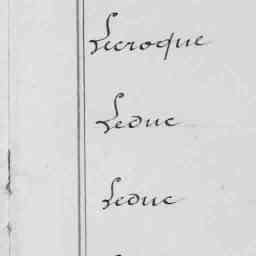 Lecroque
Leduc
Leduc